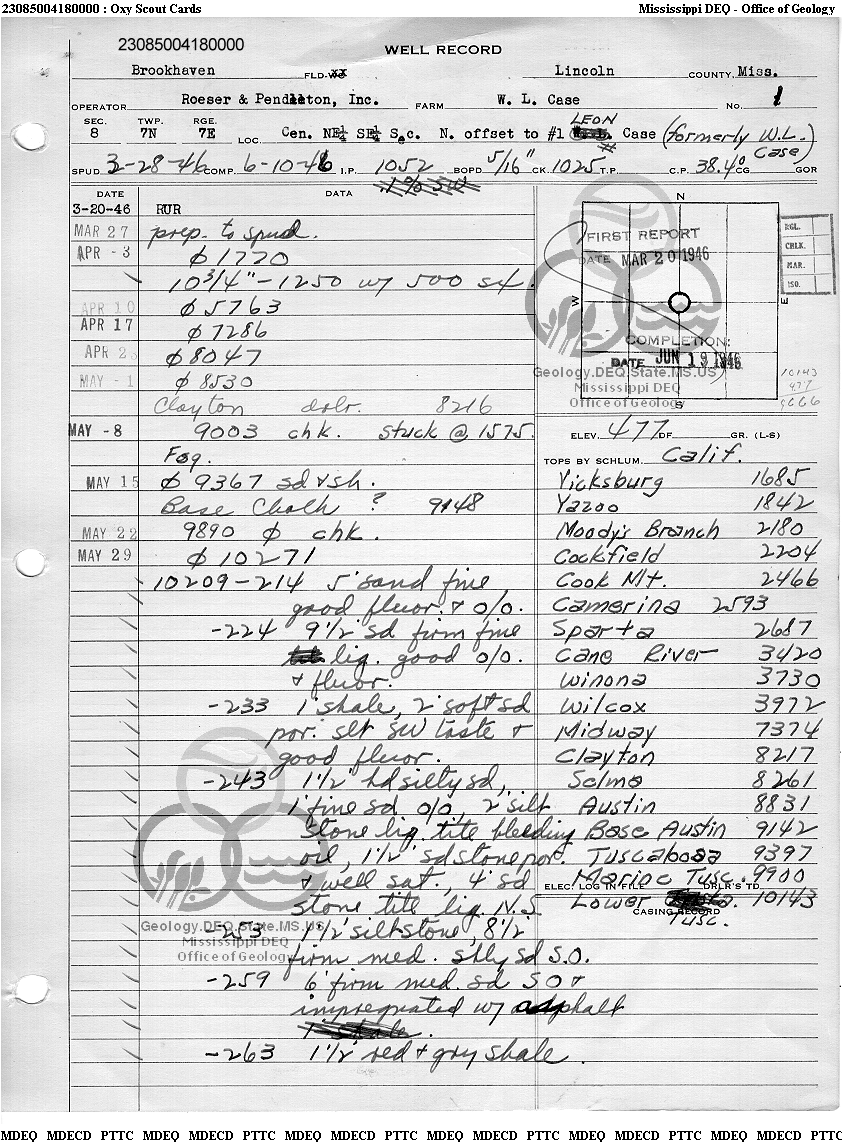 23085004180000 : Oxy Scout Cards Mississippi DEQ - Office of Geology
23085004180000
WELL RECORD
Brookhaven FLD. Lincoln COUNTY, Miss.
OPERATOR Roeser & Pendleton, Inc. FARM W. L. Case No. 1
SEC. TWP. RGE. LEON
8 7N 7E LOC. Cen. NE¼ SE¼ Sec. N. offset to #1 Case (formerly W.L. Case)
SPUD 3-28-46 COMP. 6-10-46 I.P. 1052 BOPD 5/16" CK. 1025 T.P. C.P. 38.4° CG GOR
DATE DATA
3-20-46 RUR
MAR 27 prep. to spud.
APR - 3 ϕ 1770
10 3/4" - 1250 w/ 500 sx.
APR 10 ϕ 5763
APR 17 ϕ 7286
APR 2 ϕ 8047
MAY - 1 ϕ 8530
Clayton drlr. 8216
MAY - 8 9003 chk. stuck @ 1575.
Fsg.
MAY 15 ϕ 9367 sd & sh.
Base Chalk ? 9148
MAY 22 9890 ϕ chk.
MAY 29 ϕ 10271
10209-214 5' sand fine
good fluor. & o/o.
-224 9 1/2' sd firm fine
lig. good o/o.
& fluor.
-233 1' shale, 2' soft sd
por. slt SW taste &
good fluor.
-243 1 1/2' hd silty sd,
1' fine sd o/o, 2' silt
stone lig. tite bleeding
oil, 1 1/2' sdstone por.
& well sat., 4' sd
stone tite lig. N.S
-253 1 1/2' siltstone, 8 1/2'
firm med. slty sd S.O.
-259 6' firm med. sd S O &
impregnated w/ asphalt
-263 1 1/2' red & gry shale.
N
FIRST REPORT
DATE MAR 20 1946
W E
COMPLETION:
DATE JUN 19 1946
S
RGL.
CHLK.
MAR.
ISO.
10143
477
9666
Geology.DEQ.State.MS.US
Mississippi DEQ
Office of Geology
ELEV. 477 DF GR. (L-S)
TOPS BY SCHLUM. Calif.
Vicksburg 1685
Yazoo 1842
Moody's Branch 2180
Cockfield 2204
Cook Mt. 2466
Camerina 2593
Sparta 2687
Cane River 3420
Winona 3730
Wilcox 3972
Midway 7374
Clayton 8217
Selma 8261
Austin 8831
Base Austin 9142
Tuscaloosa 9397
Marine Tusc. 9900
ELEC. LOG IN FILE DRLR'S TD
Lower Tusc. 10143
CASING RECORD
Geology.DEQ.State.MS.US
Mississippi DEQ
Office of Geology
MDEQ MDECD PTTC MDEQ MDECD PTTC MDEQ MDECD PTTC MDEQ MDECD PTTC MDEQ MDECD PTTC MDEQ MDECD PTTC